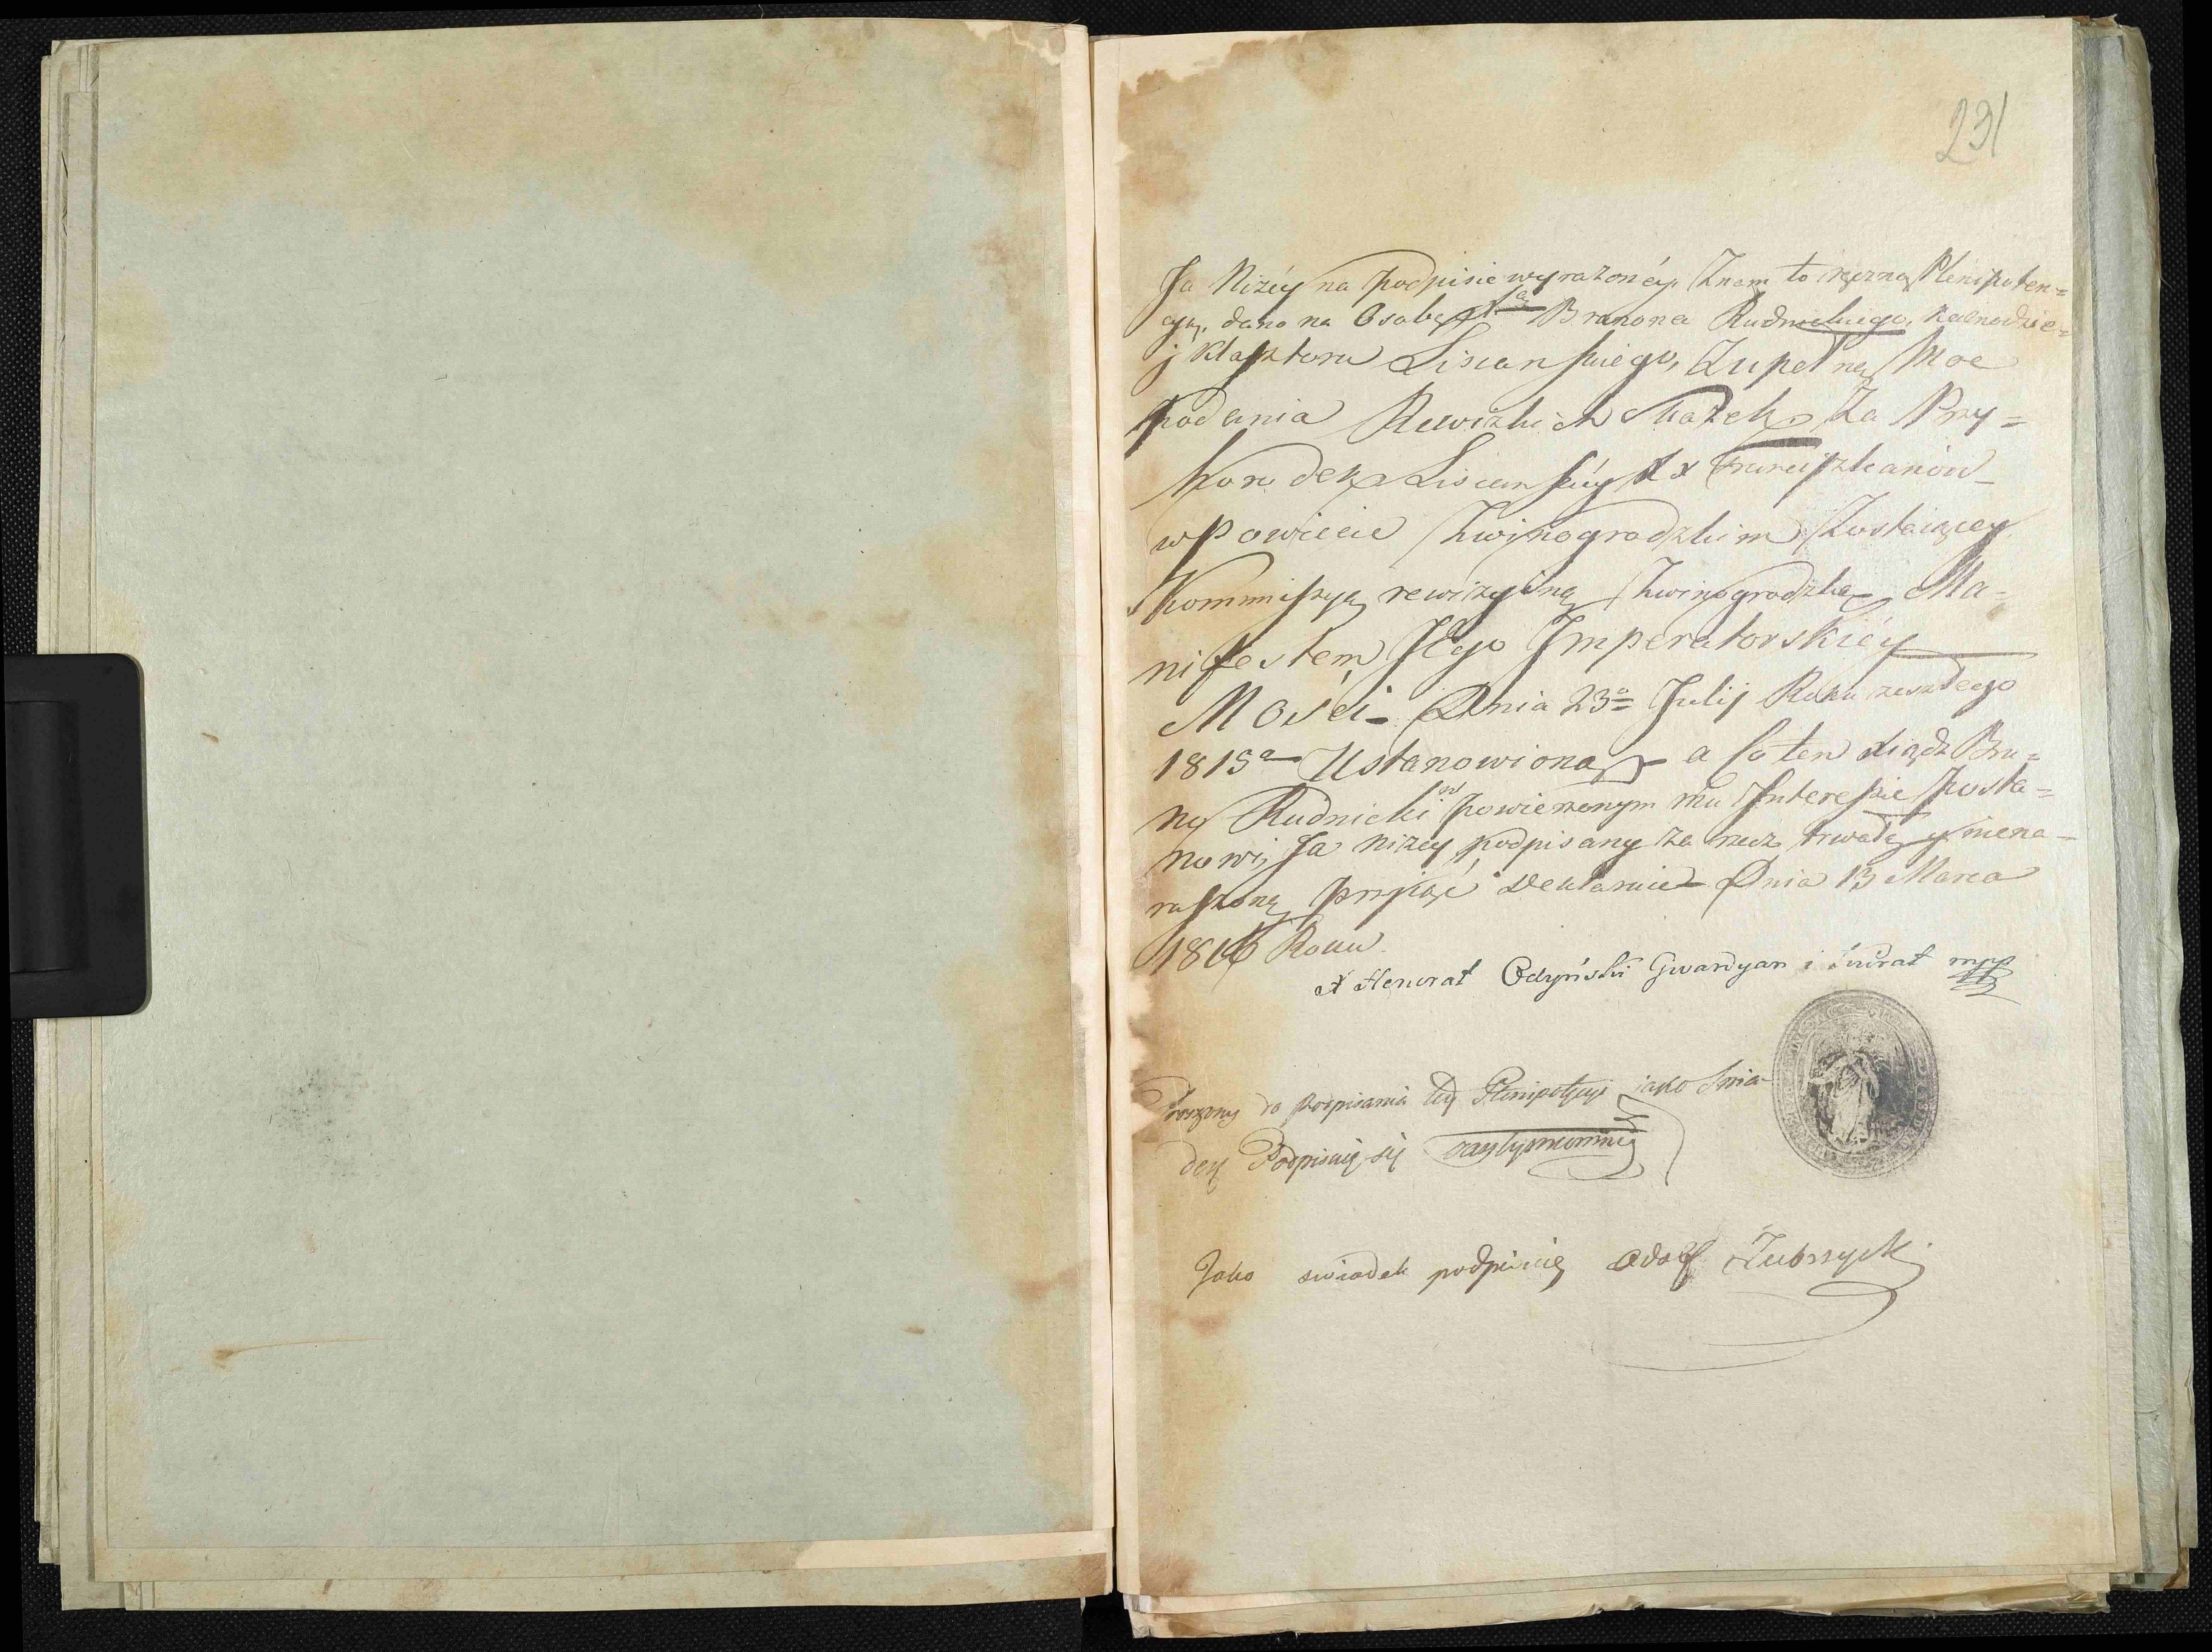 231
Ja Niżéy na podpisie wyrażonéy, Znam tą ręczną Plenipoten=
cyą, dano na Osobę Xdza Brunona Rudnickiego, Kaznodzie=
j Klasztoru Lisianskiego, Zupełną Moc
podania Rewizkich Skazek, Za Pry=
horodek Lisianskiy XX Franciszkanów
w Powiecie Zwinogrodzkim Zostaiącey
Kommissyą rewizyiną Zwinogrodzką Ma=
nifestem Jego Imperatorskiéy
Mości Dnia 23º Julij Roku zeszłego
1815ª Ustanowioną a co ten Xiądz Bru=
no Rudnicki w powierzonym mu Interessie posta=
nowi, Ja niżey podpisany za rzecz trwałą y niena=
ruszoną przyiąć deklaruie Dnia 13 Marca
1816 Roku
X Honorat Odyński Gwardyan i Kurat mpp
Proszony do podpisania tey Plenipotęcyi iako Świa=
dek Podpisuię się
Jako swiadek podpisuię Adolf Zubrzycki